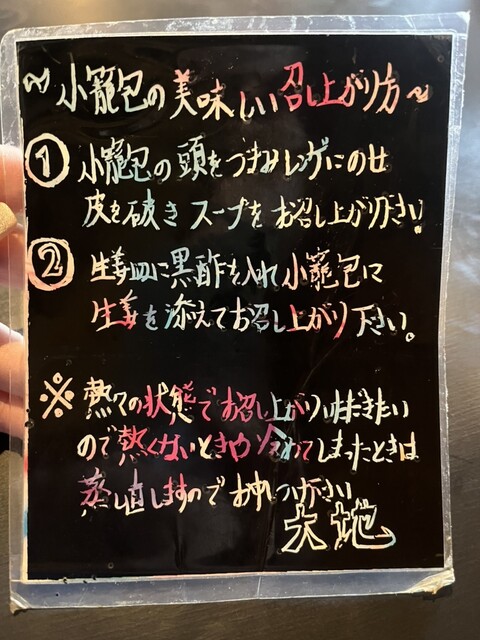 ～小籠包の美味しい召し上がり方～
① 小籠包の頭をつまみレンゲにのせ
皮を破きスープをお召し上がり下さい!
② 生姜皿に黒酢を入れ小籠包に
生姜を添えてお召し上がり下さい。
※ 熱々の状態でお召し上がりいただきたい
ので熱くないときや冷めてしまったときは
蒸し直しますのでお申しつけ下さい
大地